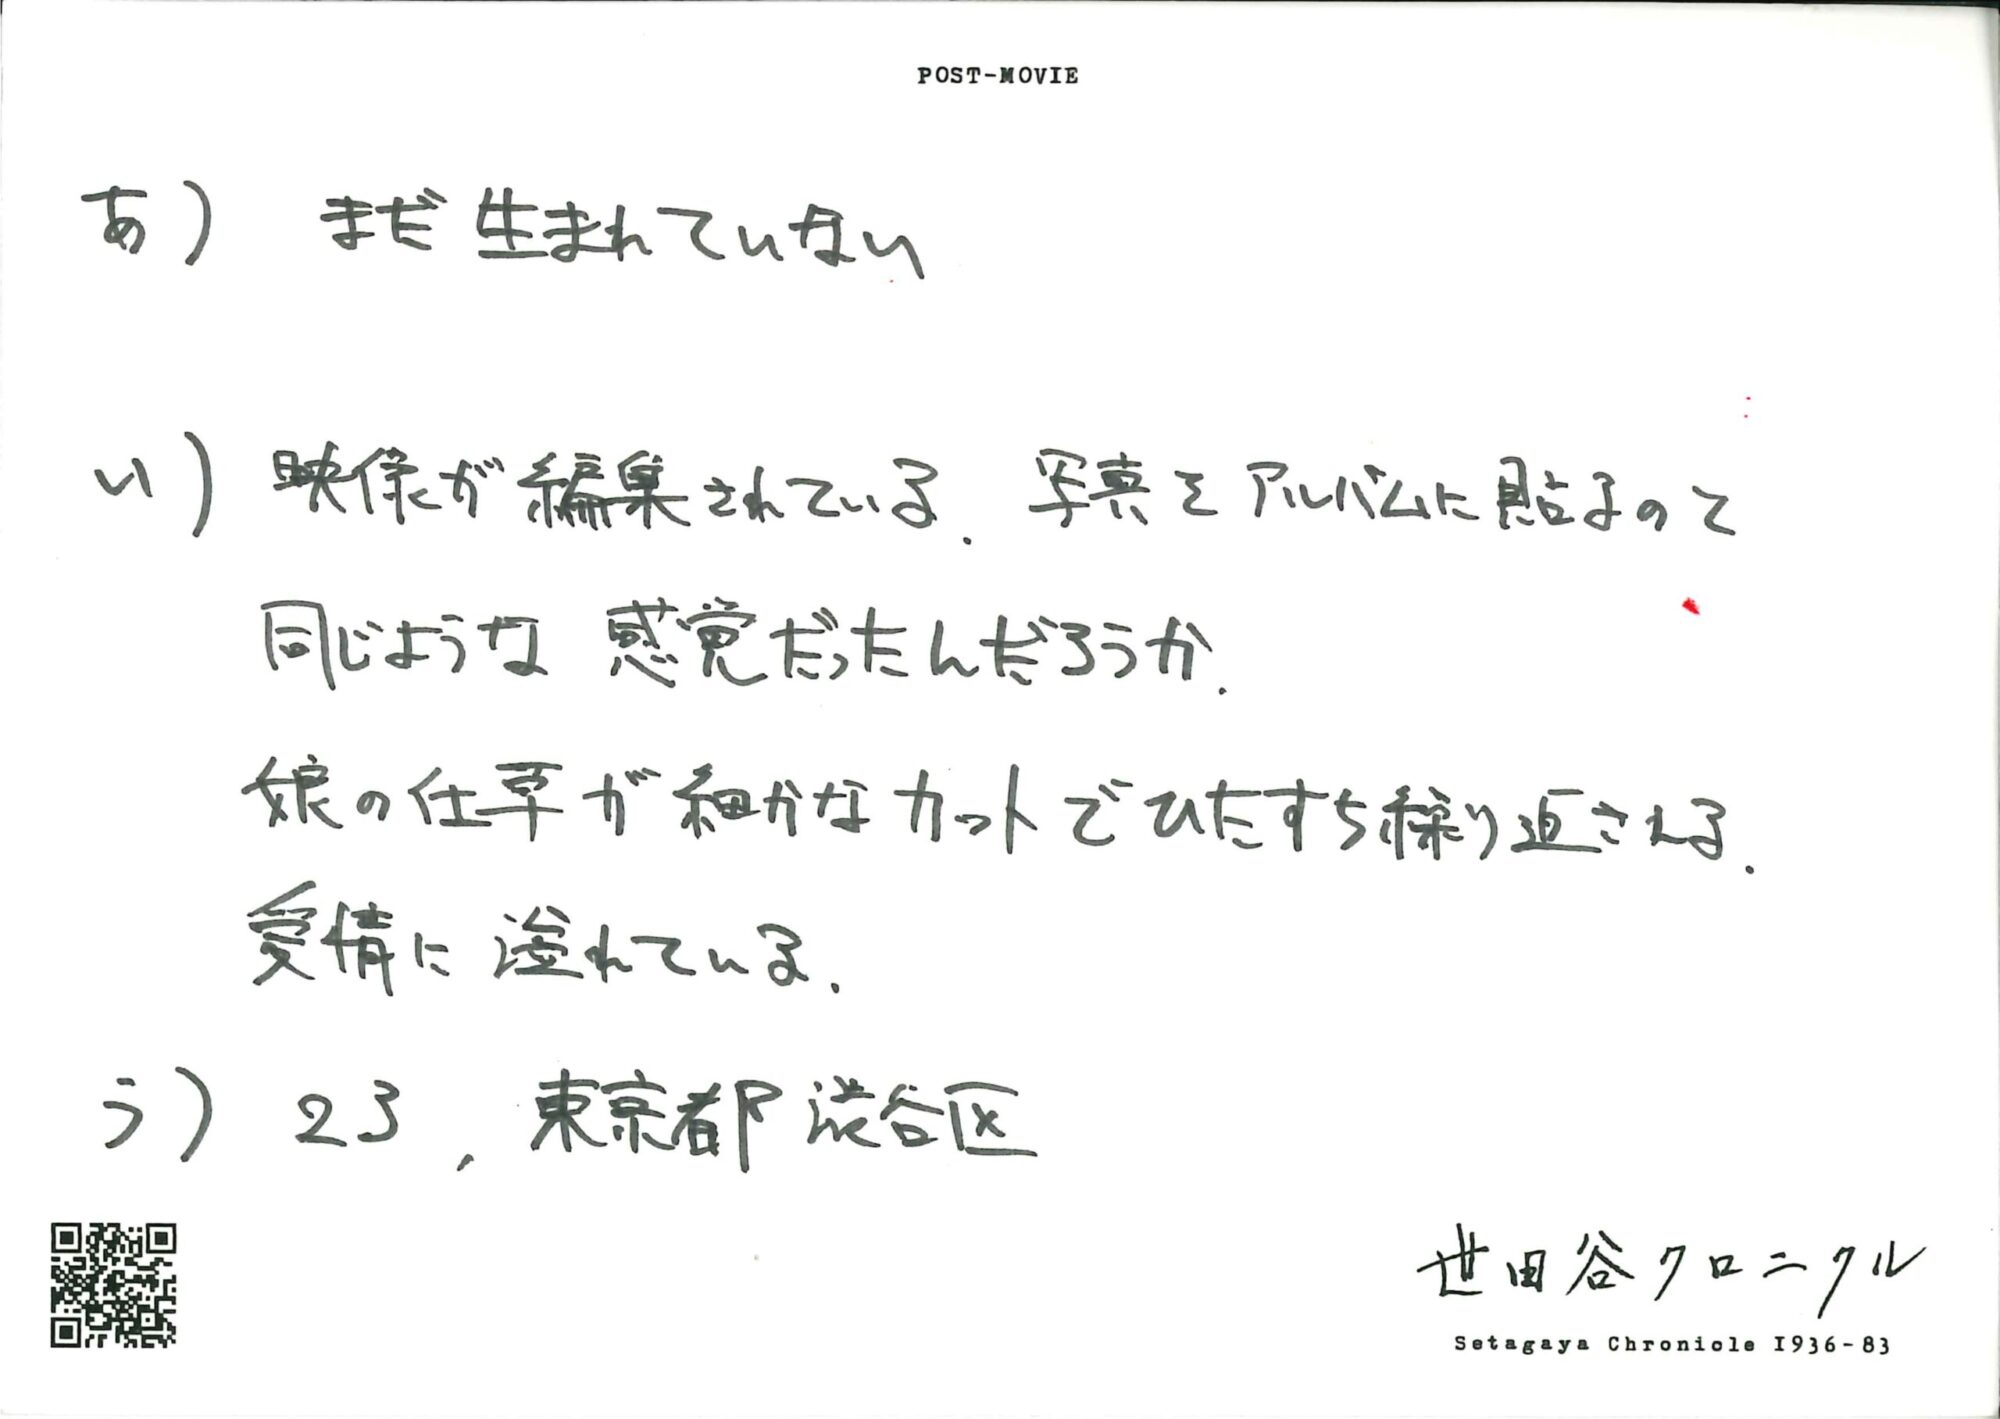 POST-MOVIE
あ) まだ生まれていない
い) 映像が編集されている. 写真をアルバムに貼るのと
同じような感覚だったんだろうか.
娘の仕草が細かなカットでひたすら繰り返される.
愛情に溢れている.
う) 23, 東京都渋谷区
世田谷クロニクル
Setagaya Chroniole 1936-83